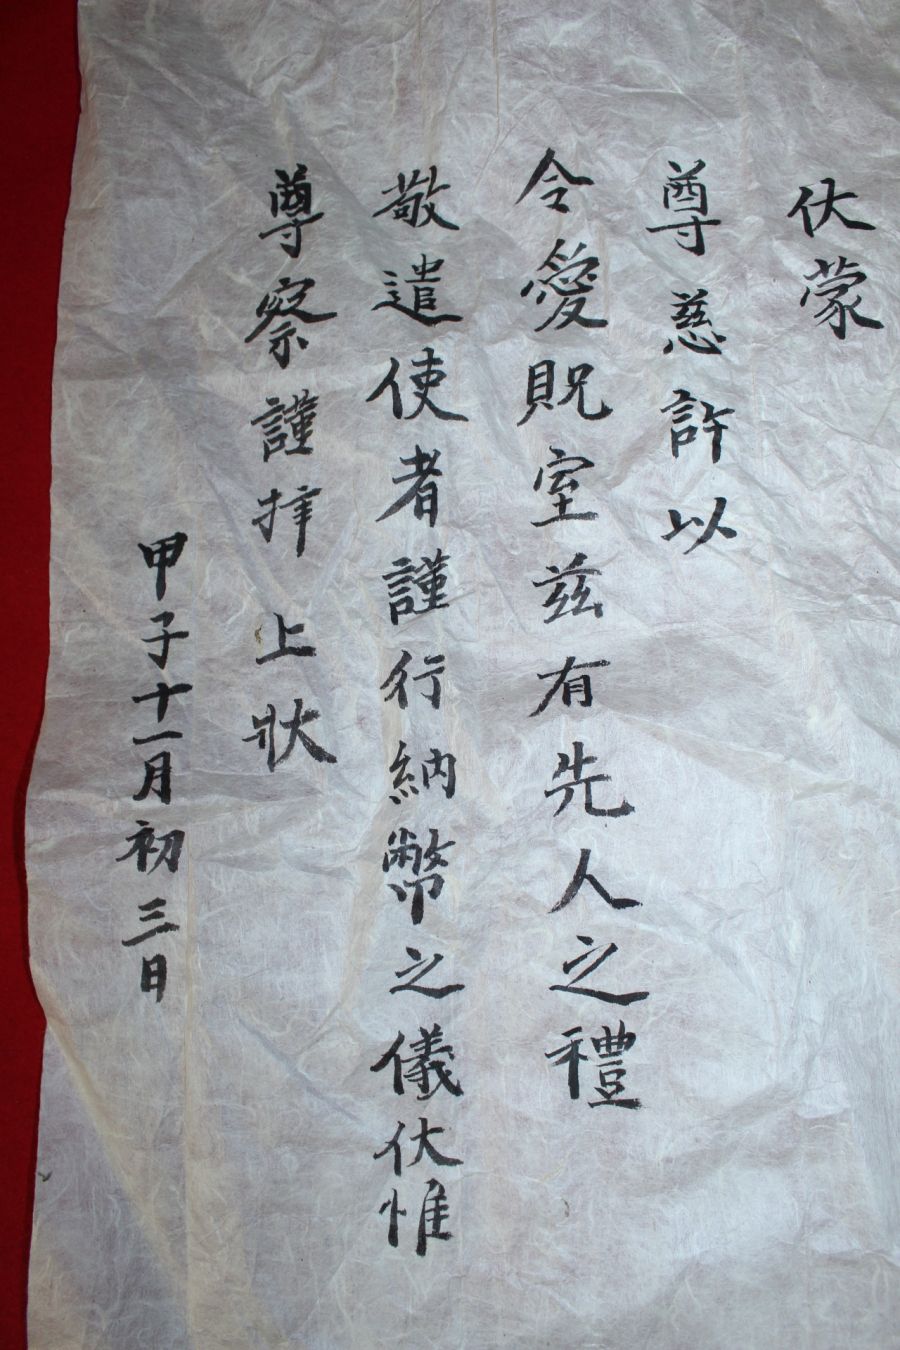 伏蒙
尊慈許以
令愛貺室兹有先人之禮
敬遣使者謹行納幣之儀伏惟
尊察謹拜 上狀
甲子十一月初三日